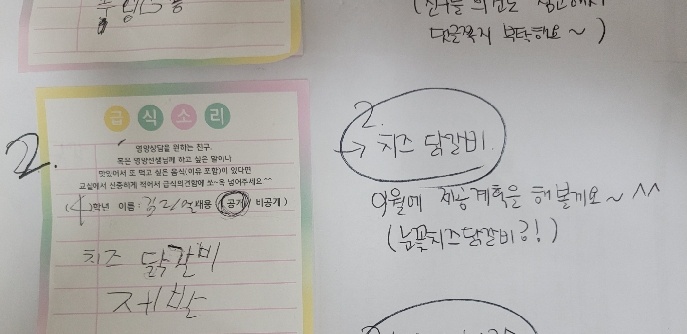 (친구들 의견은
댓글쪽지 부탁해요~)
2.
급식소리
영양상담을 원하는 친구.
혹은 영양선생님께 하고 싶은 말이나
맛있어서 또 먹고 싶은 음식(이유 포함)이 있다면
교실에서 신중하게 적어서 급식의견함에 쏘~옥 넣어주세요^^
(4)학년 이름: 내용 (공개/비공개)
치즈 닭갈비
제발
2.
→ 치즈 닭갈비.
9월에 제공계획은 해볼게요~^^
(눈꽃치즈닭갈비?!)